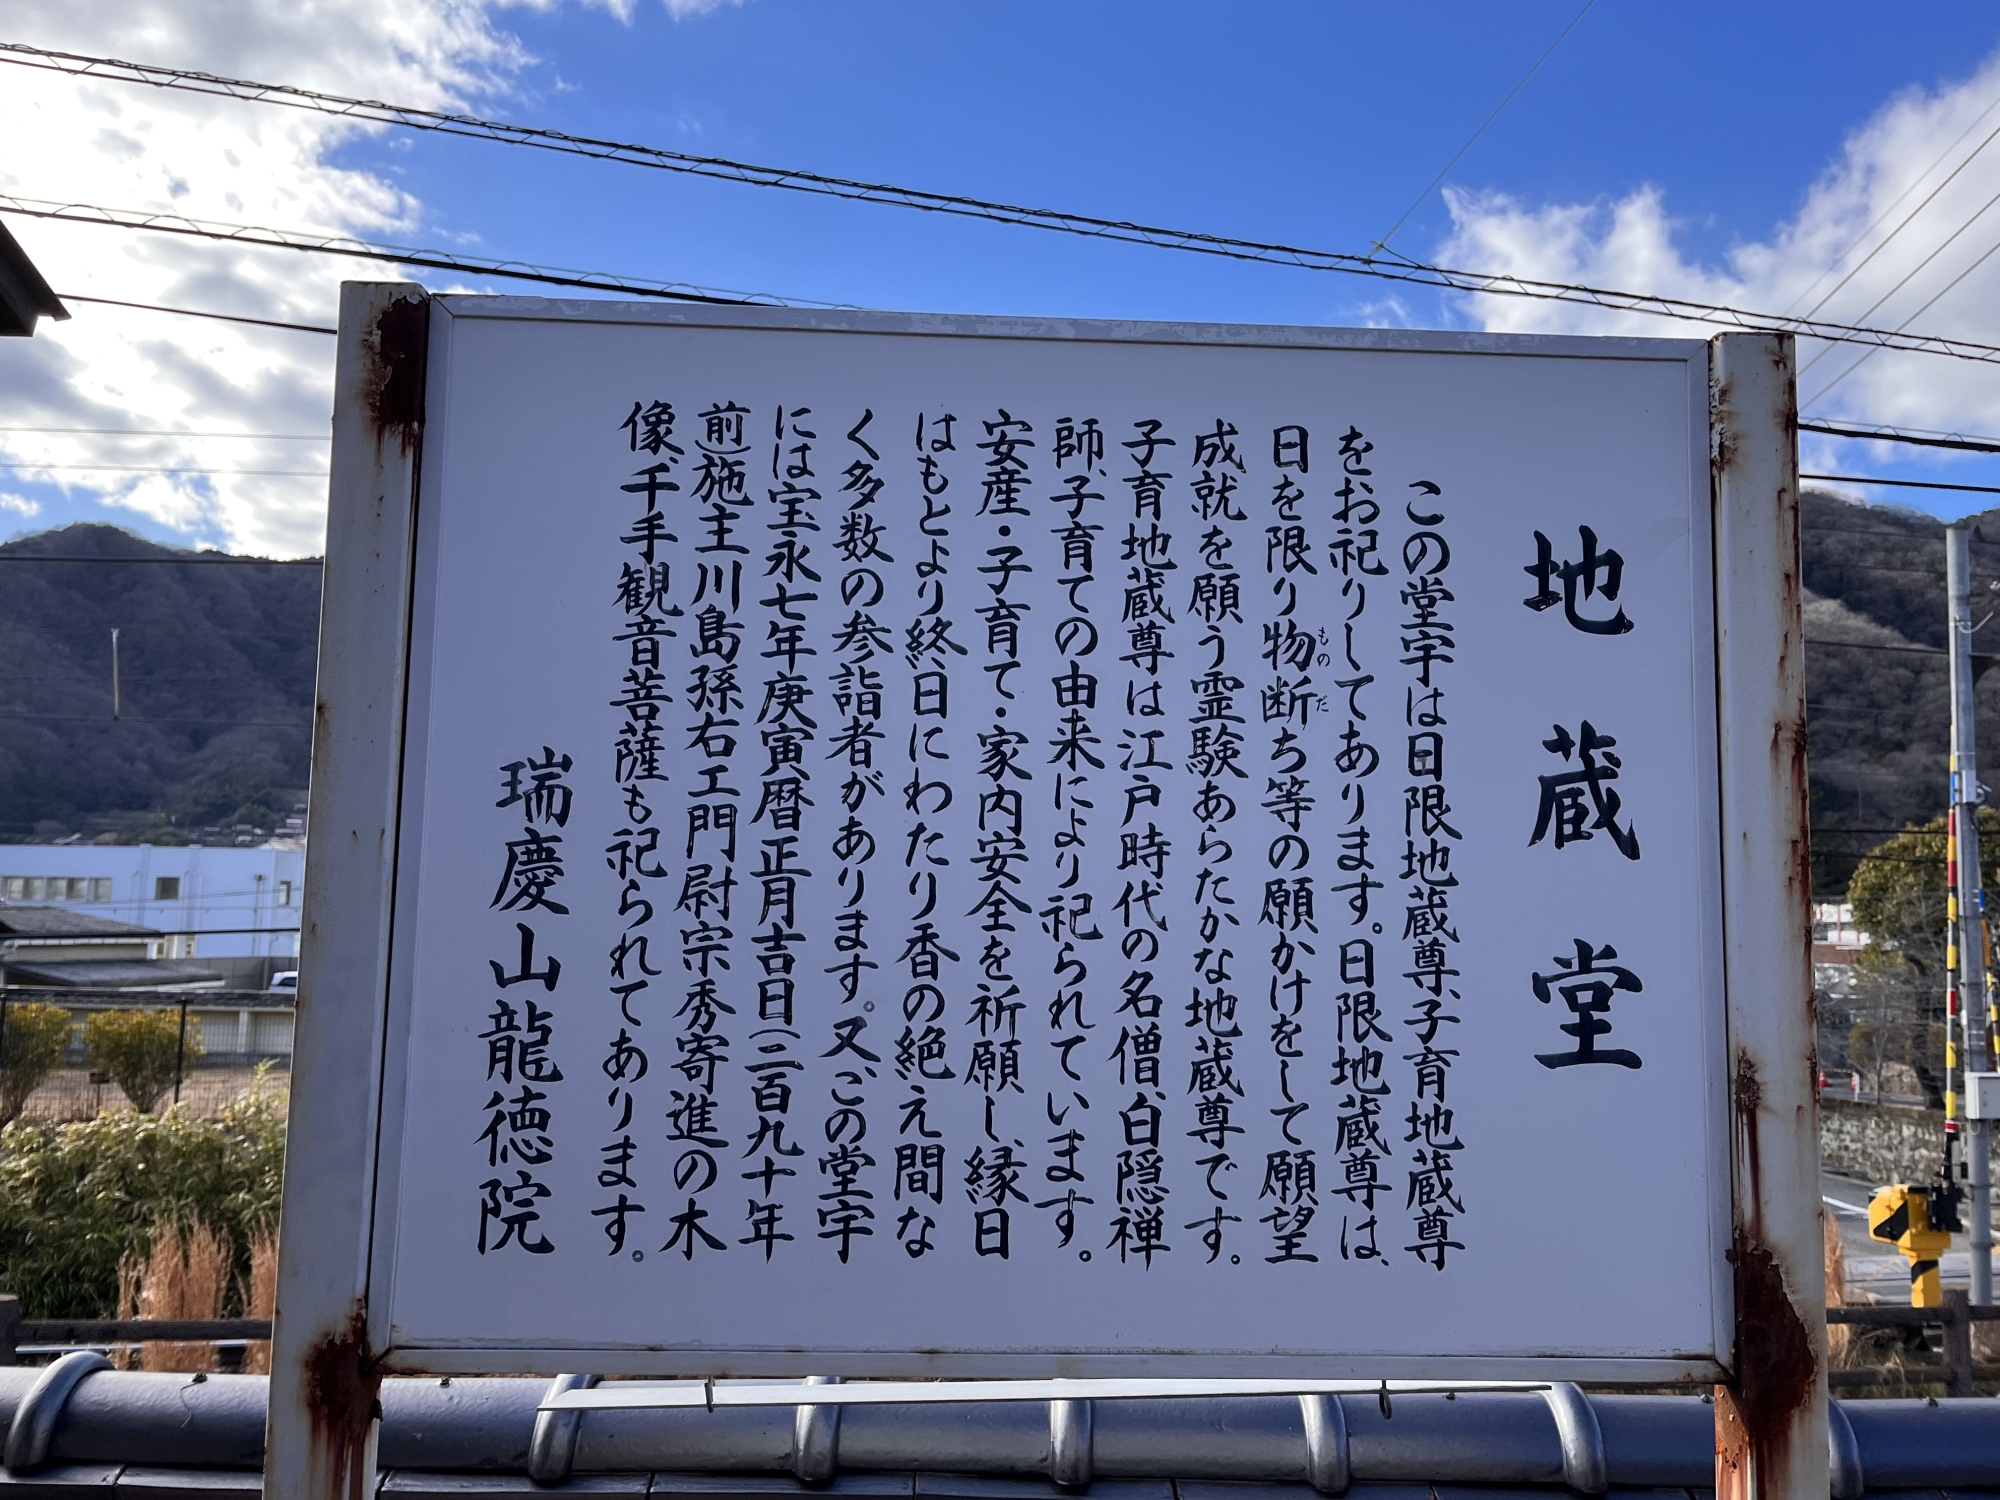 地蔵堂
この堂宇は日限地蔵尊、子育地蔵尊
をお祀りしてあります。日限地蔵尊は、
日を限り物断ち等の願かけをして願望
ものだ
成就を願う霊験あらたかな地蔵尊です。
子育地蔵尊は江戸時代の名僧、白隠禅
師、子育ての由来により祀られています。
安産・子育て・家内安全を祈願し、縁日
はもとより終、日にわたり香の絶え間な
く多数の参詣者があります。又、この堂宇
には宝永七年庚寅暦正月吉日(二百九十年
前)施主川島孫右エ門尉宗秀寄進の木
像、千手観音菩薩も祀られてあります。
瑞慶山龍徳院